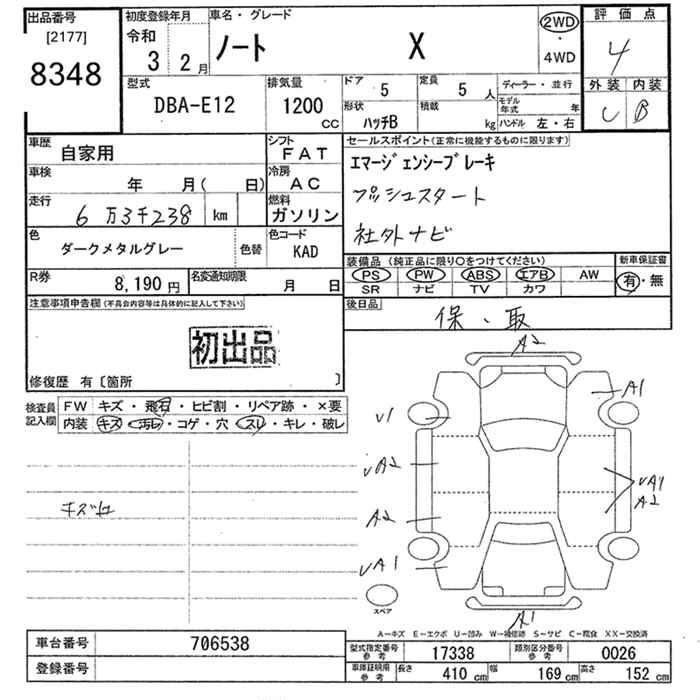 出品番号
[2177]
8348
初度登録年月
令和
3 2月
車名・グレード
ノート X
2WD
4WD
評価点
4
外装 内装
C B
型式
DBA-E12
排気量
1200
CC
ドア
5
定員
5 人
形状
ハッチB
積載
kg
ディーラー・並行
モデル年式 年
ハンドル 左・右
車歴
自家用
シフト
FAT
車検
年 月( 日)
冷房
AC
走行
6万3千238 km
燃料
ガソリン
色
ダークメタルグレー
色替
色コード
KAD
R券
8,190 円
名変通知期限
月 日
セールスポイント(正常に機能するものに限ります)
エマージェンシーブレーキ
プッシュスタート
社外ナビ
装備品 (純正品に限り○をつけてください)
PS PW ABS エアB AW
SR ナビ TV カワ
新車保証書
有・無
後日品
保・取
注意事項申告欄(不具合内容等は具体的に記入して下さい)
初出品
修復歴 有〔箇所 〕
検査員記入欄
FW キズ・飛石・ヒビ割・リペア跡・×要
内装 キズ・汚レ・コゲ・穴・スレ・キレ・破レ
A2
A1
U1
UA2
A2
UA1
UA1
A2
A1
スペア
A-キズ E-エクボ U-凹み W-補修跡 S-サビ C-腐食 XX-交換済
車台番号
706538
登録番号
型式指定番号
参考
17338
類別区分番号
参考
0026
車庫証明用
参考
長さ 410 cm
幅 169 cm
高さ 152 cm